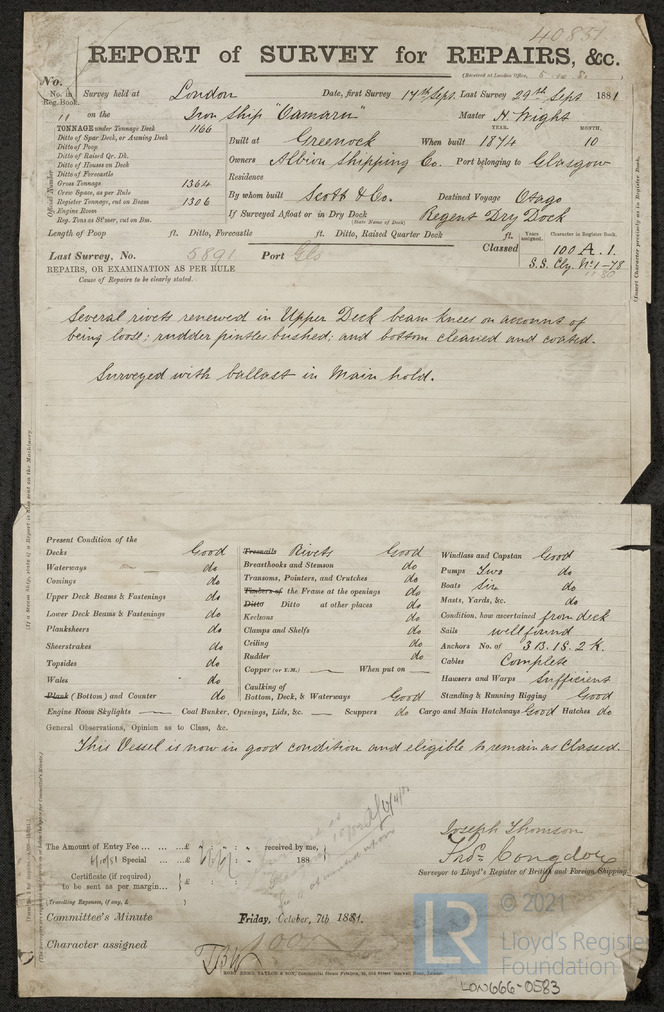 40831
REPORT of SURVEY for REPAIRS, &c.
(Received at London Office,
No.
No. in Reg. Book. Survey held at London Date, first Survey 14th Sept. Last Survey 29th Sept 1881
11 on the Iron Ship "Oamaru" Master H. Wight
TONNAGE under Tonnage Deck 1166
YEAR. MONTH.
Ditto of Spar Deck, or Awning Deck
Built at Greenock When built 1874 10
Ditto of Poop
Ditto of Raised Qr. Dk.
Ditto of Houses on Deck
Owners Albion Shipping Co. Port belonging to Glasgow
Ditto of Forecastle
Residence
Gross Tonnage 1364
Crew Space, as per Rule
By whom built Scott & Co. Destined Voyage Otago
Register Tonnage, cut on Beam 1306
Engine Room
If Surveyed Afloat or in Dry Dock Regent Dry Dock
(State Name of Dock)
Reg. Tons as St'mer, cut on Bm.
Official Number
Length of Poop ft. Ditto, Forecastle ft. Ditto, Raised Quarter Deck ft.
Years assigned. Character in Register Book.
Classed 100 A. 1.
S.S. Cly. No.1-78
Last Survey, No. 5891 Port Gls
REPAIRS, OR EXAMINATION AS PER RULE
Cause of Repairs to be clearly stated.
(Insert Character precisely as in Register Book.
Several rivets renewed in Upper Deck beam knees on account of
being loose; rudder pintles bushed; and bottom cleaned and coated.
Surveyed with ballast in Main hold.
Present Condition of the
Decks Good
Waterways do
Comings do
Upper Deck Beams & Fastenings do
Lower Deck Beams & Fastenings do
Planksheers do
Sheerstrakes do
Topsides do
Wales do
Plank (Bottom) and Counter do
Treenails Rivets Good
Breasthooks and Stemson do
Transoms, Pointers, and Crutches do
Timbers of the Frame at the openings do
Ditto Ditto at other places do
Keelsons do
Clamps and Shelfs do
Ceiling do
Rudder do
Copper (or Y.M.) When put on
Caulking of
Bottom, Deck, & Waterways Good
Windlass and Capstan Good
Pumps Two do
Boats Six do
Masts, Yards, &c. do
Condition, how ascertained from deck
Sails well found
Anchors No. of 3 B. 1 S. 2 K.
Cables Complete
Hawsers and Warps Sufficient
Standing & Running Rigging Good
Engine Room Skylights Coal Bunker, Openings, Lids, &c. Scuppers do Cargo and Main Hatchways Good Hatches do
General Observations, Opinion as to Class, &c.
This Vessel is now in good condition and eligible to remain as Classed.
The Amount of Entry Fee £ received by me,
6/10/81 Special £ 188
Certificate (if required)
to be sent as per margin
(Travelling Expenses, if any, £ )
Joseph Thomson
Thos. Congdon
Surveyor to Lloyd's Register of British and Foreign Shipping.
Committee's Minute Friday, October, 7th 1881.
Character assigned 100A
© 2021
LR
Lloyd's Register
Foundation
LON666-0583